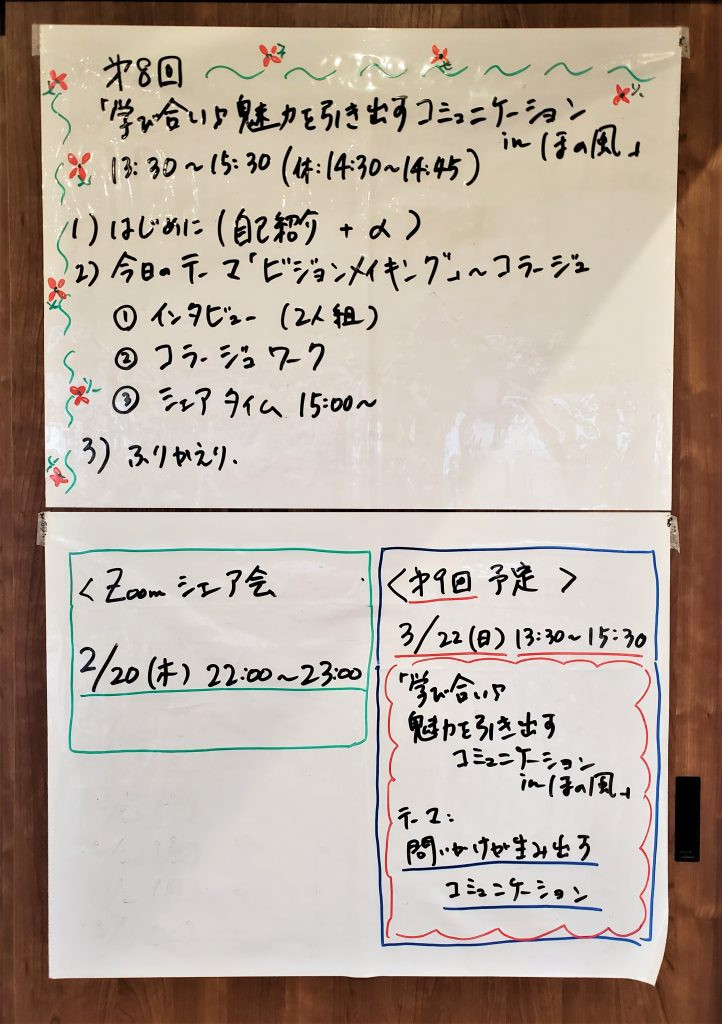 第8回
「学び合い♪魅力を引き出すコミュニケーション
in ほの風」
13:30〜15:30(休:14:30〜14:45)
1) はじめに(自己紹介 + α)
2) 今日のテーマ「ビジョンメイキング」〜コラージュ
① インタビュー(2人組)
② コラージュワーク
③ シェアタイム 15:00〜
3) ふりかえり.
<Zoomシェア会
2/20(木) 22:00〜23:00
<第9回 予定>
3/22(日) 13:30〜15:30
「学び合い♪
魅力を引き出す
コミュニケーション
in ほの風」
テーマ:
問いかけが生み出す
コミュニケーション